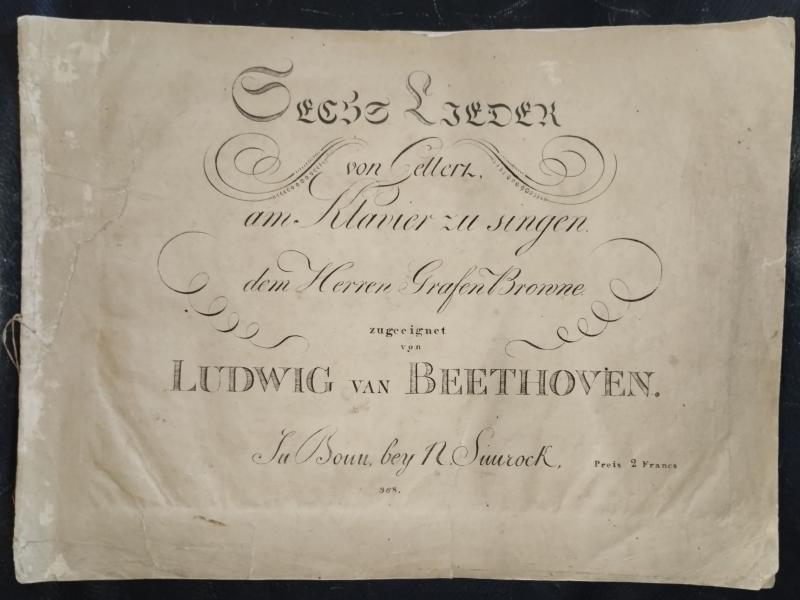 Sechs Lieder
von Gellert,
am Klavier zu singen.
dem Herren Grafen Browne.
zugeeignet
von
LUDWIG VAN BEETHOVEN.
In Bonn, bey N. Simrock, Preis 2 Francs
368.